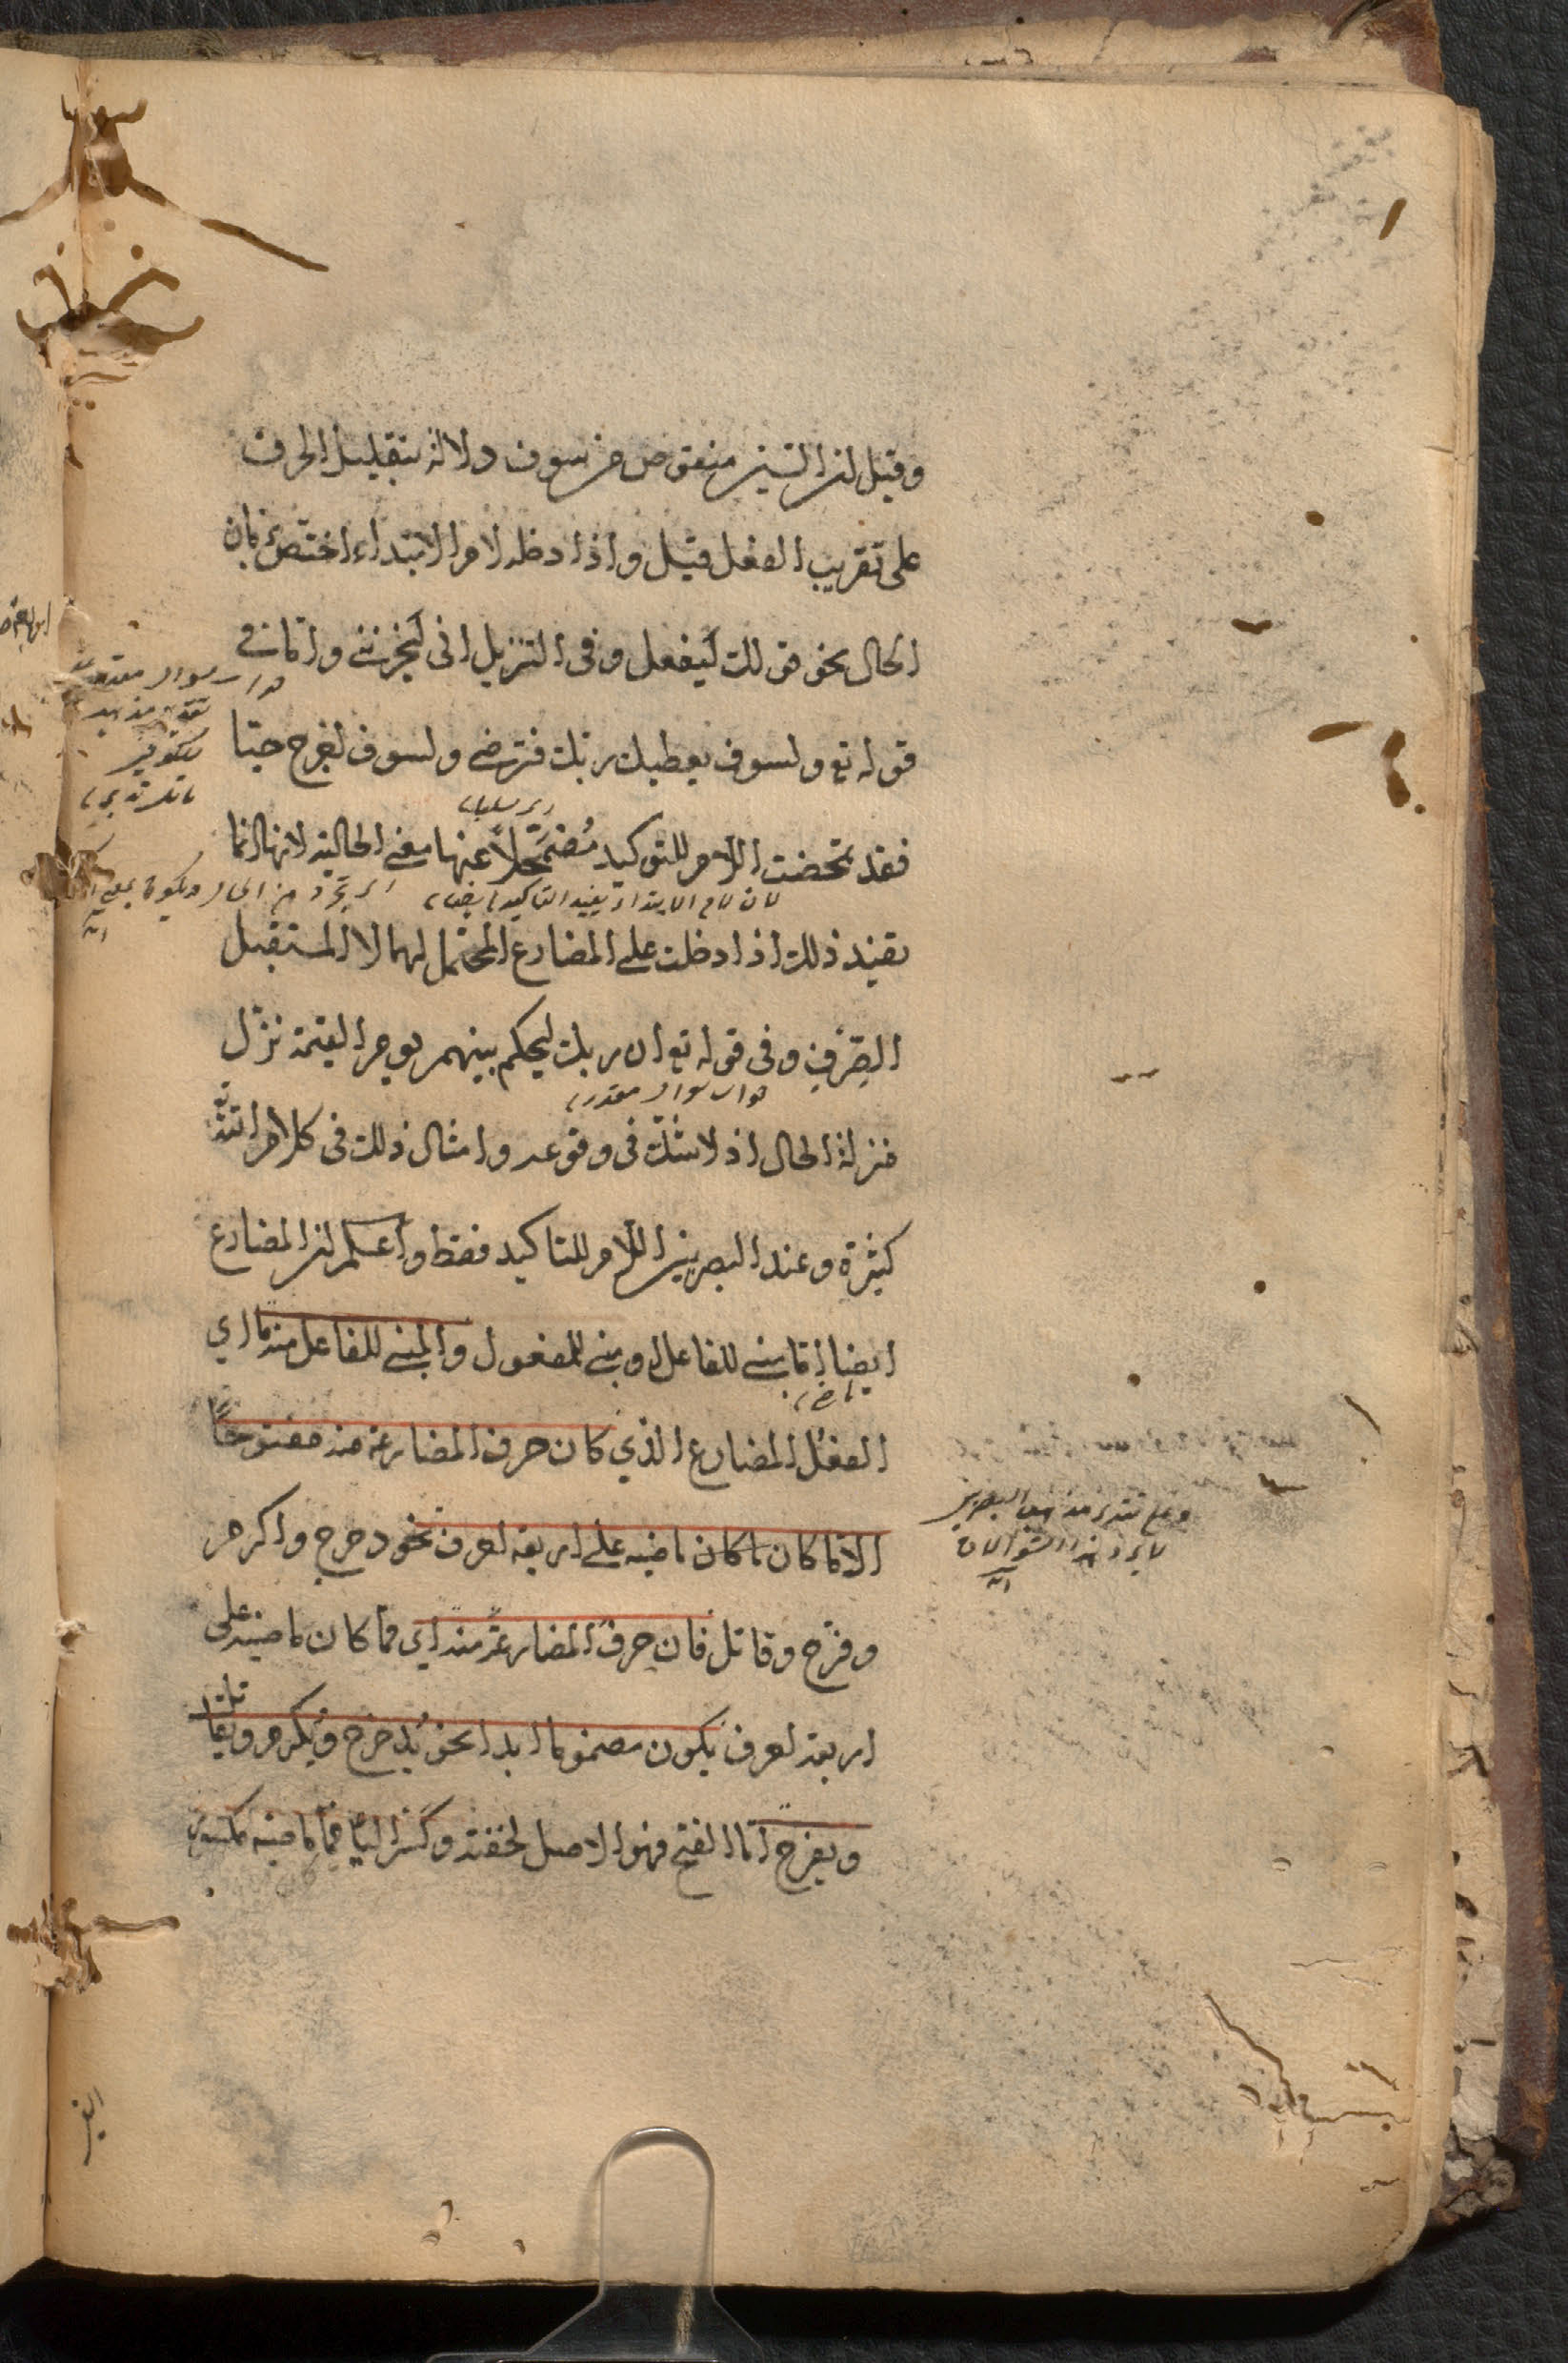 وقيل ان السين منقوص من سوف دلالة بتقليل الحرف
على تقريب الفعل قيل واذا دخله لام الابتداء اختص بزمان
الحال نحو قولك ليفعل وفى التنزيل انى ليحزننى واما فى
قوله تع ولسوف يعطيك ربك فترضى ولسوف اخرج حيا
فقد تمحضت اللام للتوكيد مُضمَحِلاًّ عنها معنى الحالية لانها انما
لان لام الابتداء يفيد التاكيد ايضا
تفيد ذلك اذا دخلت على المضارع المحتمل لهما لا المستقبل
الصِّرْفِ وفى قوله تع ان ربك ليحكم بينهم يوم القيمة نزّل
جواب سوال مقدر
منزلة الحال اذ لا شك فى وقوعه وامثال ذلك فى كلام الله
كثيرة وعند البصريين اللام للتاكيد فقط واعلم ان المضارع
ايضا اما مبنى للفاعل او مبنى للمفعول والمبنى للفاعل منه ما اي
الفعل المضارع الذي كان حرف المضارعة منه مفتوحًا
الا ما كان ما كان ماضيه على اربعة احرف نحو دحرج واكرم
وعلى تقدير مذهب البصريين
لا يرد هذا السؤالان
وفرّح وقاتل فان حرف المضارعة منه اي مما كان ماضيه على
اربعة احرف يكون مضموما ابدا نحو يُدحرج ويُكرم ويقاتل
ويفرح اما الفتح فهو الاصل لخفته وكسر الياء فيما ماضيه مكسور